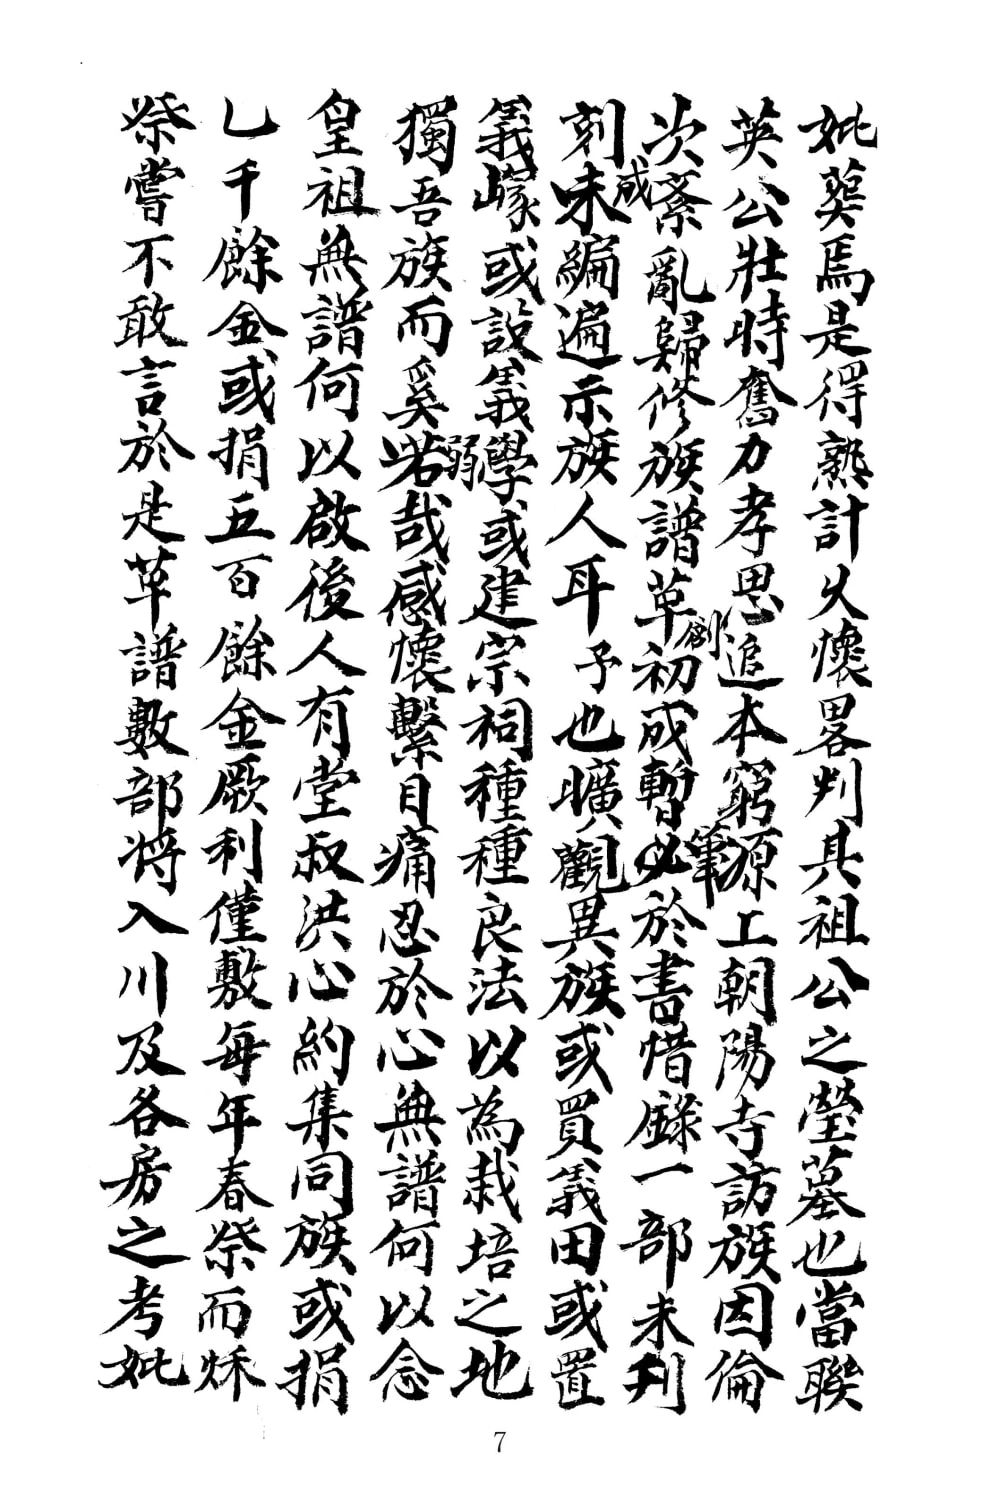 妣葬焉是得熟計乆懷畧判其祖公之塋墓也當聯
英公壯時奮力孝思追本窮源工朝陽寺訪族因倫
次紊亂歸修族譜草創初成暫筆必於書惜錄一部未刋
刻未成編遍示族人耳予也曠觀異族或買義田或置
義嫁或設義學或建宗祠種種良法以為栽培之地
獨吾族而奚若弱哉感懷繫目痛忍於心無譜何以念
皇祖無譜何以啟後人有堂叔洪心約集同族或捐
乚千餘金或捐五百餘金厥利僅敷每年春祭而秌
祭嘗不敢言於是草譜數部將入川及各房之考妣
7